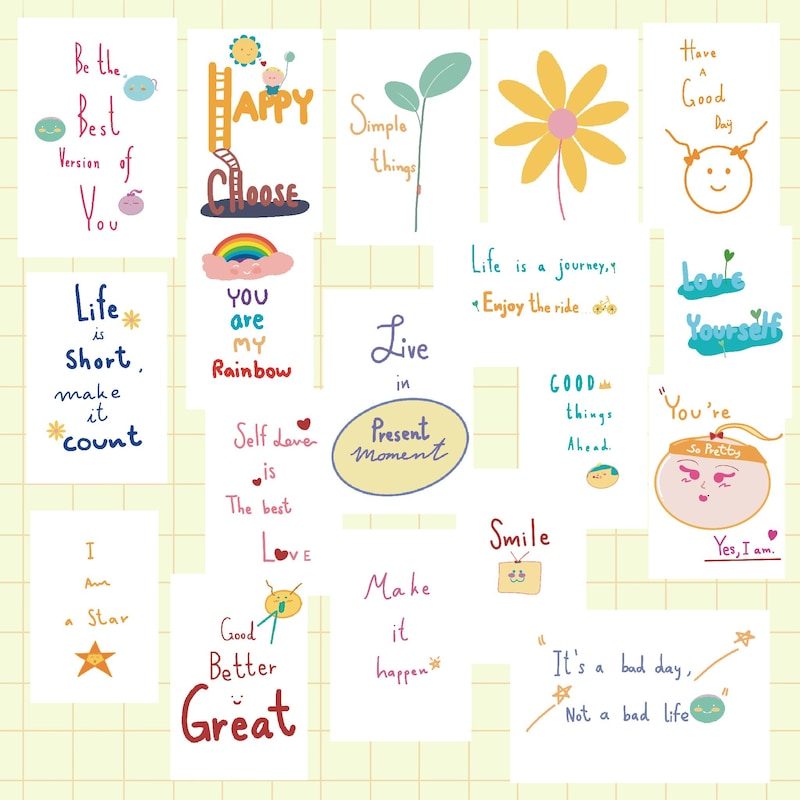 Be the
Best
Version of
You
HAPPY
CHOOSE
Simple
things
Have
A
Good
Day
Life
is
short,
make
it
count
YOU
are
MY
Rainbow
Live
in
Present
Moment
Life is a journey,
Enjoy the ride...
Love
Yourself
GOOD
things
Ahead.
"You're
So Pretty
Yes, I am.
Self Love
is
The best
Love
I
Am
a Star
Good
Better
Great
Make
it
happen
Smile
"It's a bad day,
Not a bad life"